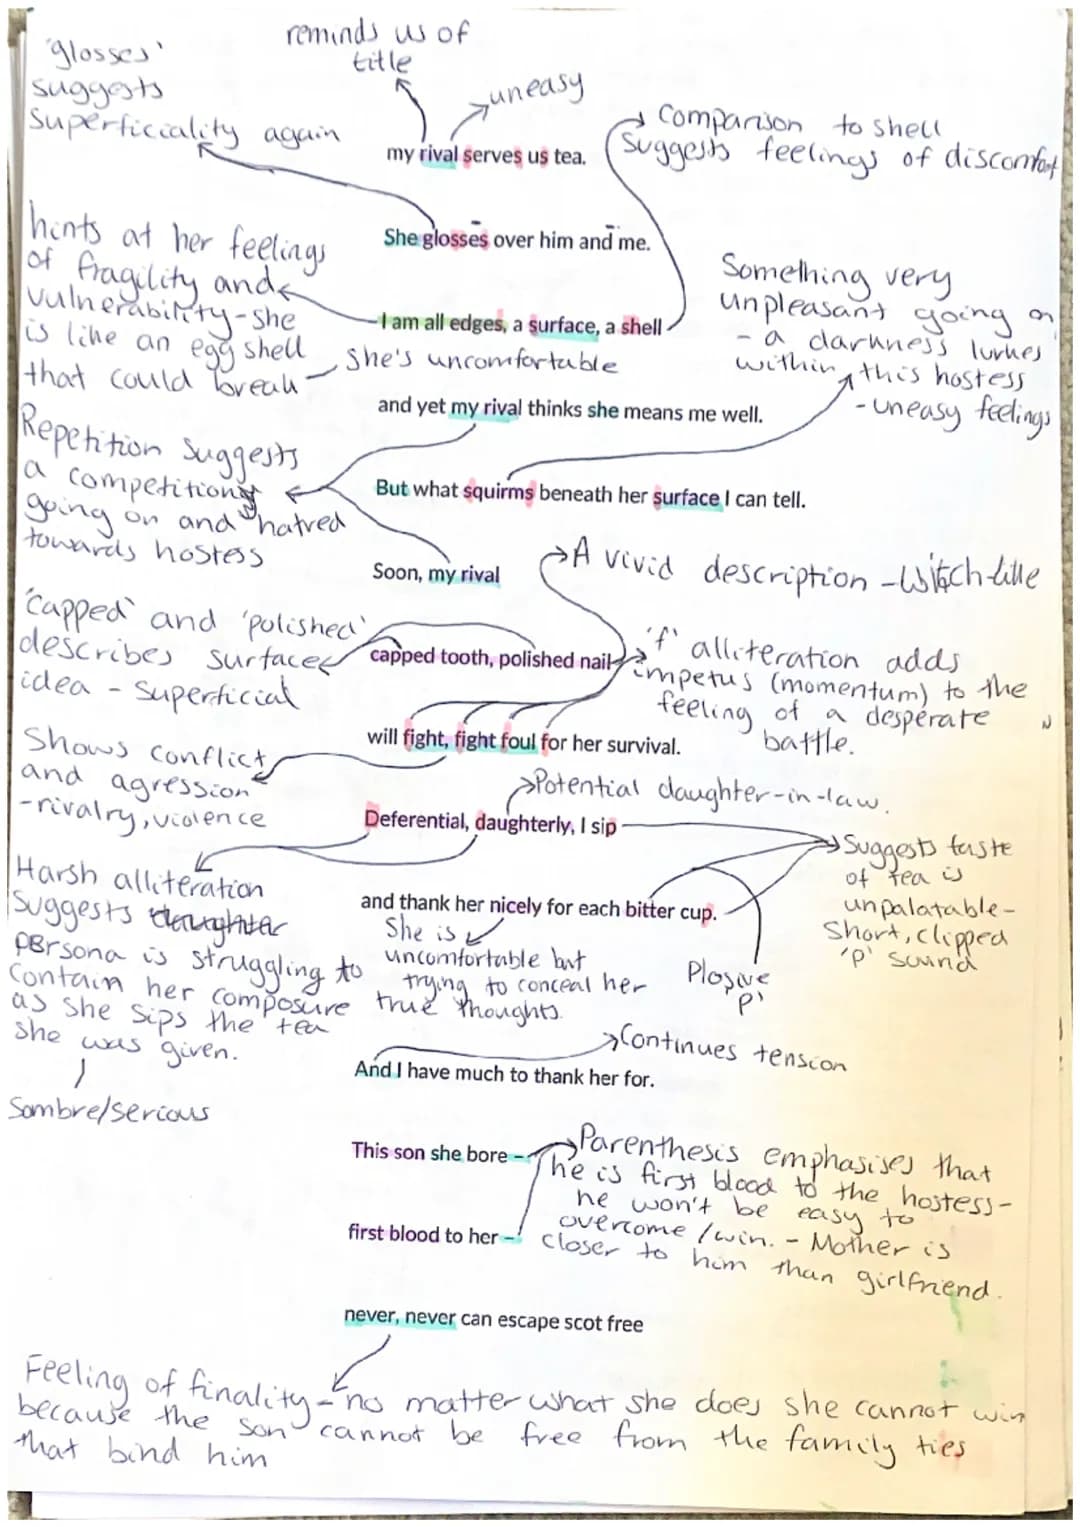 'glosses'
suggests
superficiality again
reminds us of
title
uneasy
Comparison to shell
suggests feelings of discomfort
my rival serves us tea.
She glosses over him and me.
hints at her feelings
of fragility and
vulnerability - she
is like an egg shell
that could break
I am all edges, a surface, a shell
She's uncomfortable
Something very
unpleasant going on
- a darkness lurkes
within this hostess
- uneasy feelings
and yet my rival thinks she means me well.
Repetition suggests
a competition
going on and hatred
towards hostess
But what squirms beneath her surface I can tell.
Soon, my rival
A vivid description - witch-like
'capped' and 'polished'
describes surface
idea - superficial
capped tooth, polished nail
'f' alliteration adds
impetus (momentum) to the
feeling of a desperate
battle.
will fight, fight foul for her survival.
Shows conflict
and agression
- rivalry, violence
Potential daughter-in-law.
Deferential, daughterly, I sip
Suggests taste
of tea is
unpalatable -
short, clipped
'p' sound
Harsh alliteration
suggests daughter
persona is struggling to
contain her composure
as she sips the tea
she was given.
Sombre/serious
and thank her nicely for each bitter cup.
She is
uncomfortable but
trying to conceal her
true thoughts.
Plosive
'p'
Continues tension
And I have much to thank her for.
This son she bore –
Parenthesis emphasises that
he is first blood to the hostess -
he won't be easy to
overcome / win. - Mother is
closer to him than girlfriend.
first blood to her –
never, never can escape scot free
Feeling of finality - no matter what she does she cannot win
because the son cannot be free from the family ties
that bind him